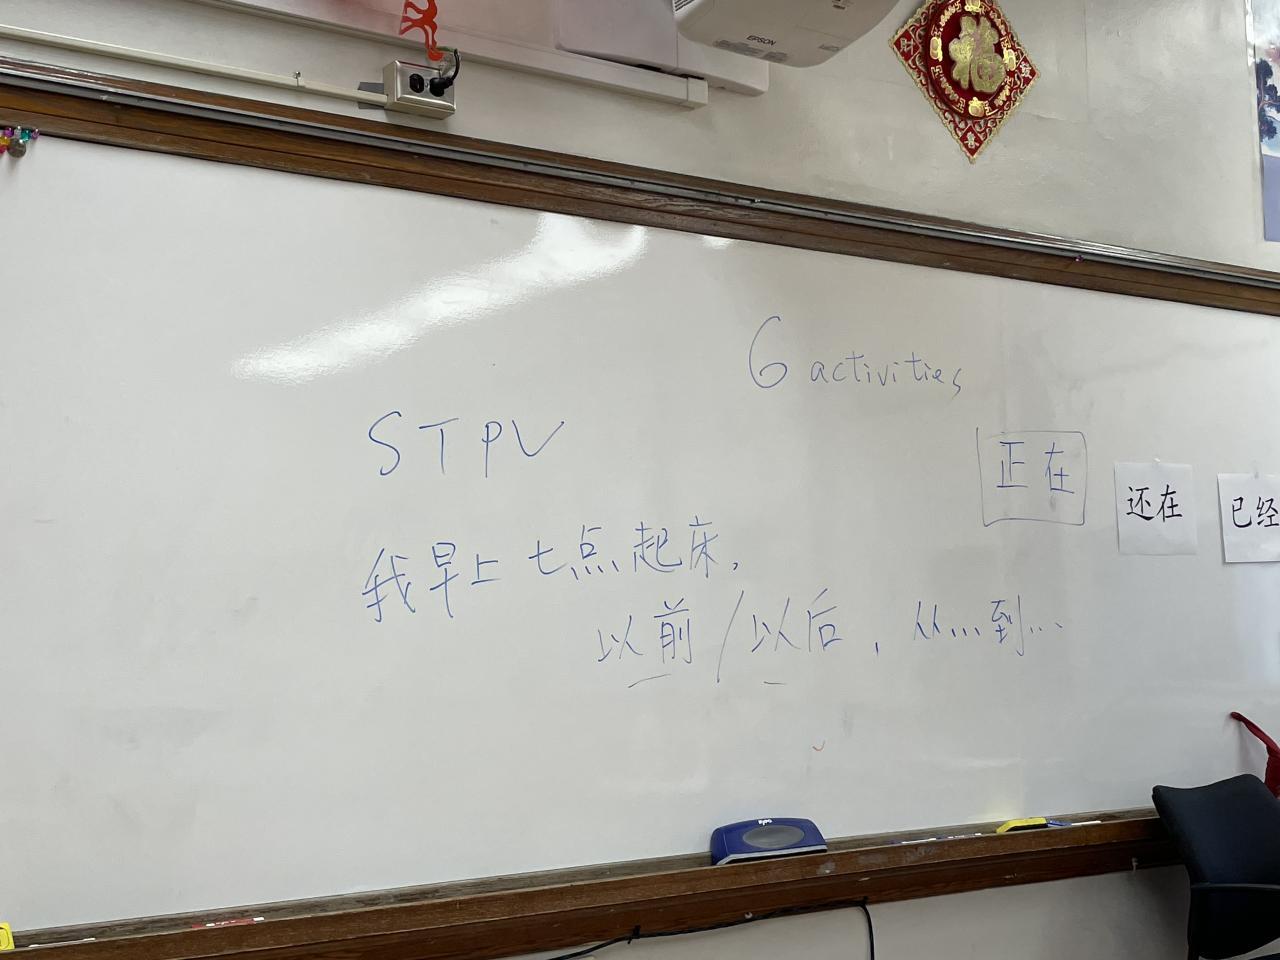 EPSON
福
6 activities
STPV
正在
还在
已经
我早上七点起床.
以前/以后, 从...到...